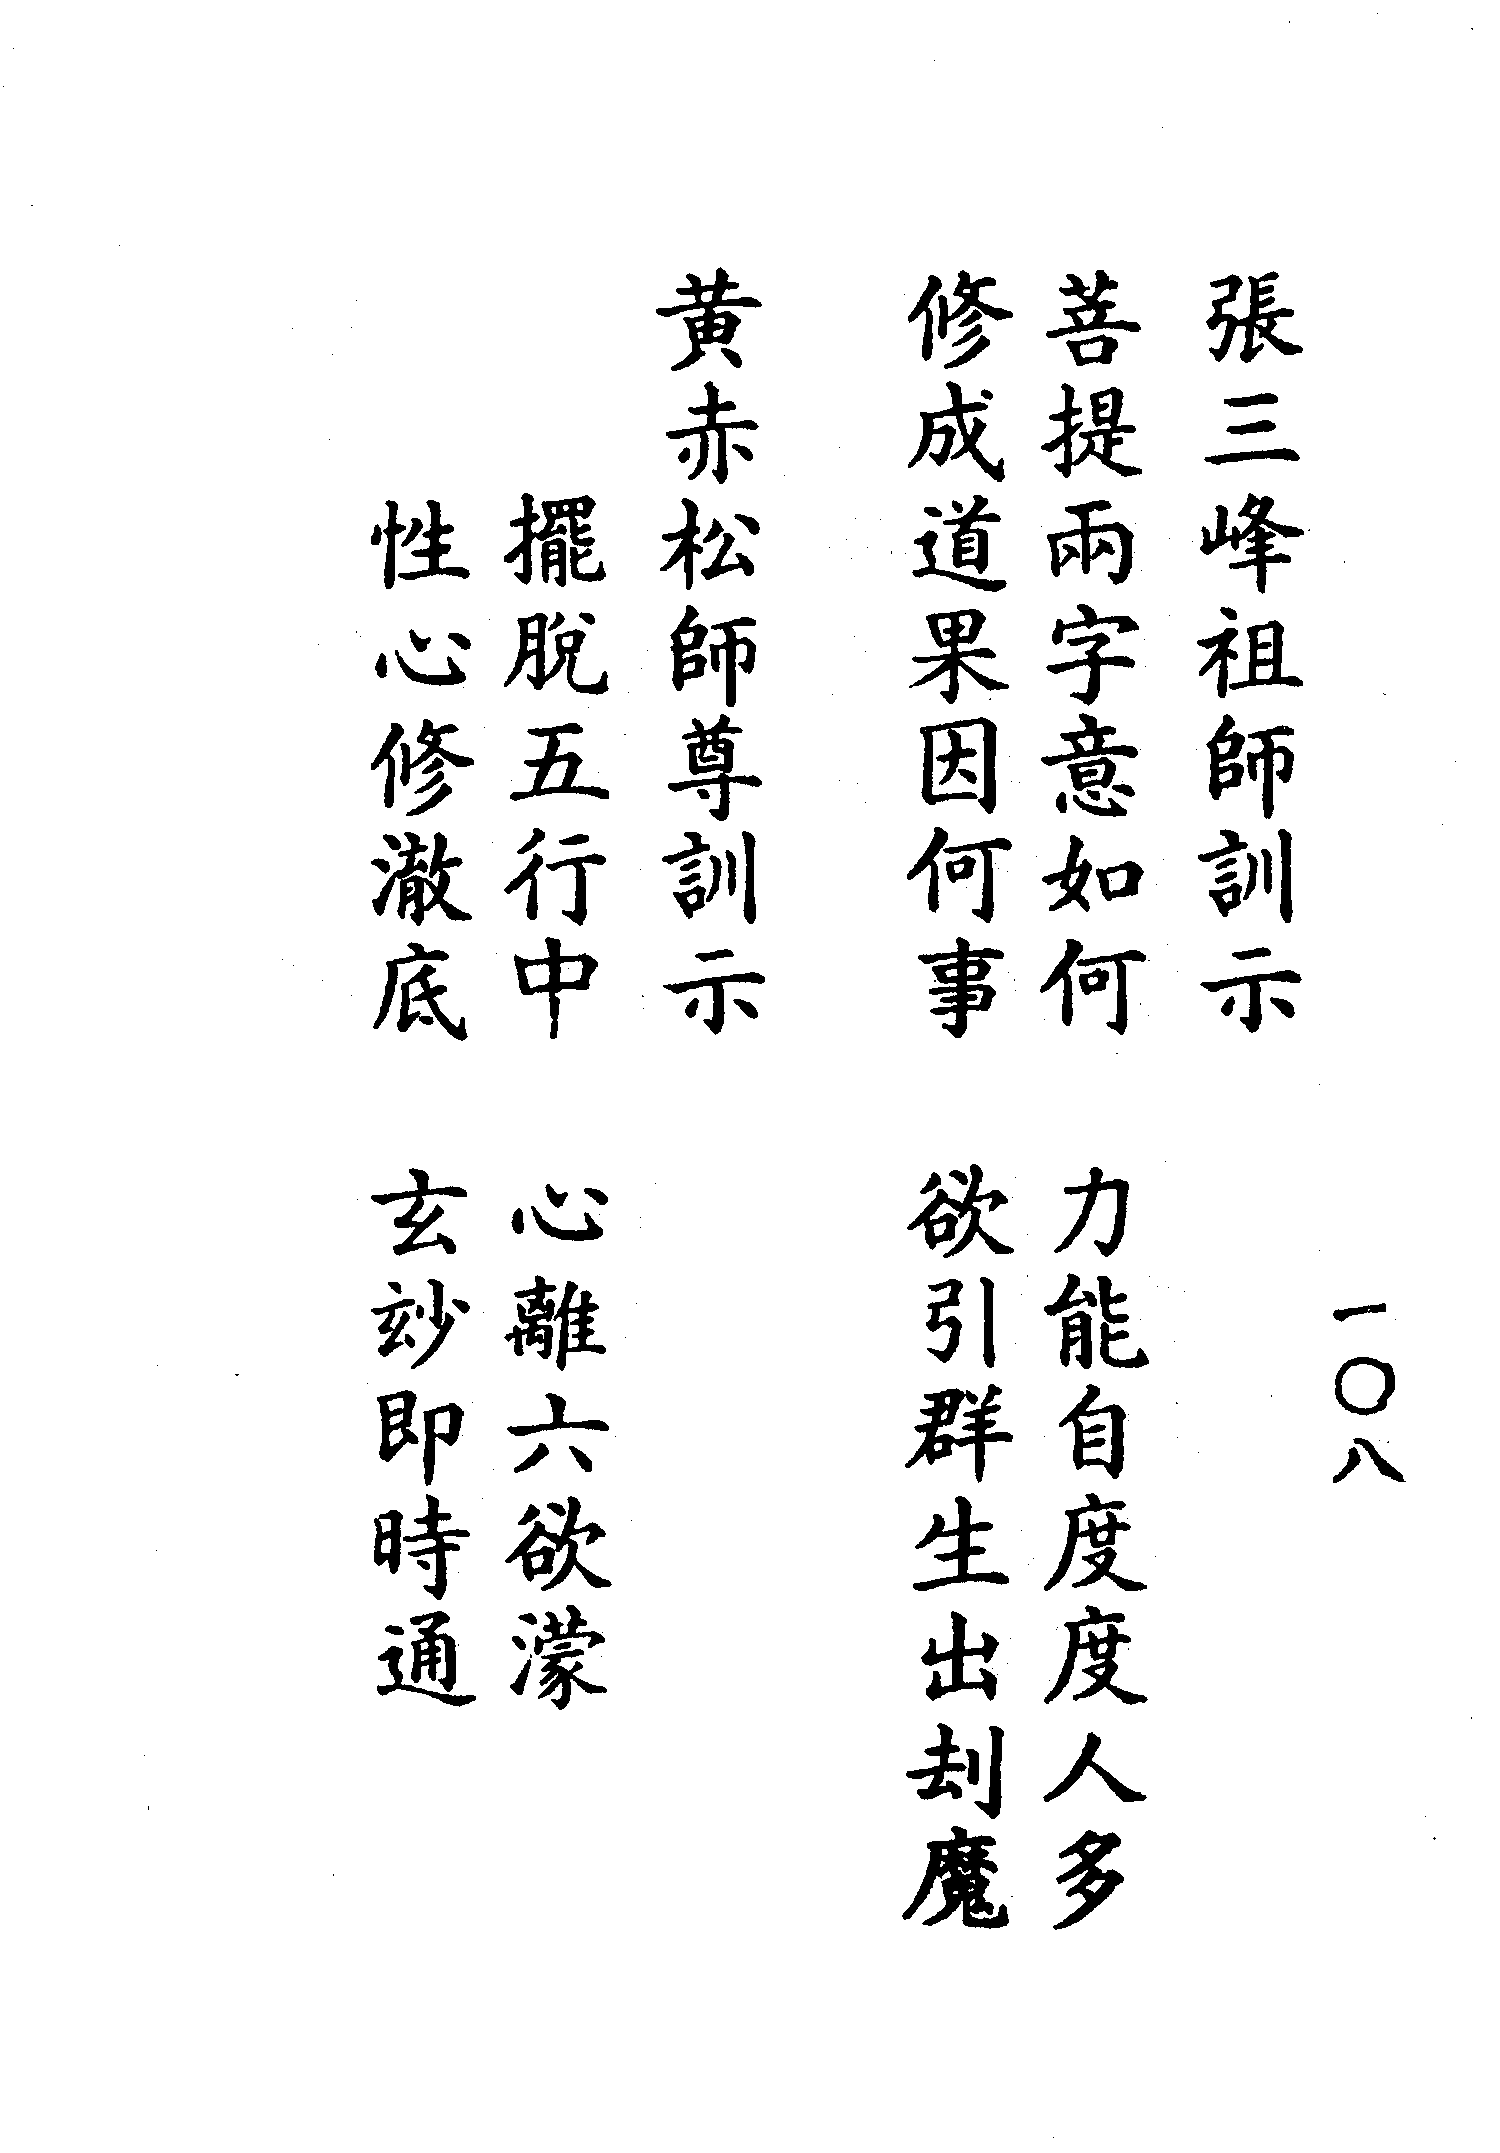 一〇八
張三峰祖師訓示
菩提兩字意如何　力能自度度人多
修成道果因何事　欲引群生出刦魔
黃赤松師尊訓示
擺脫五行中　心離六欲濛
性心修澈底　玄玅即時通